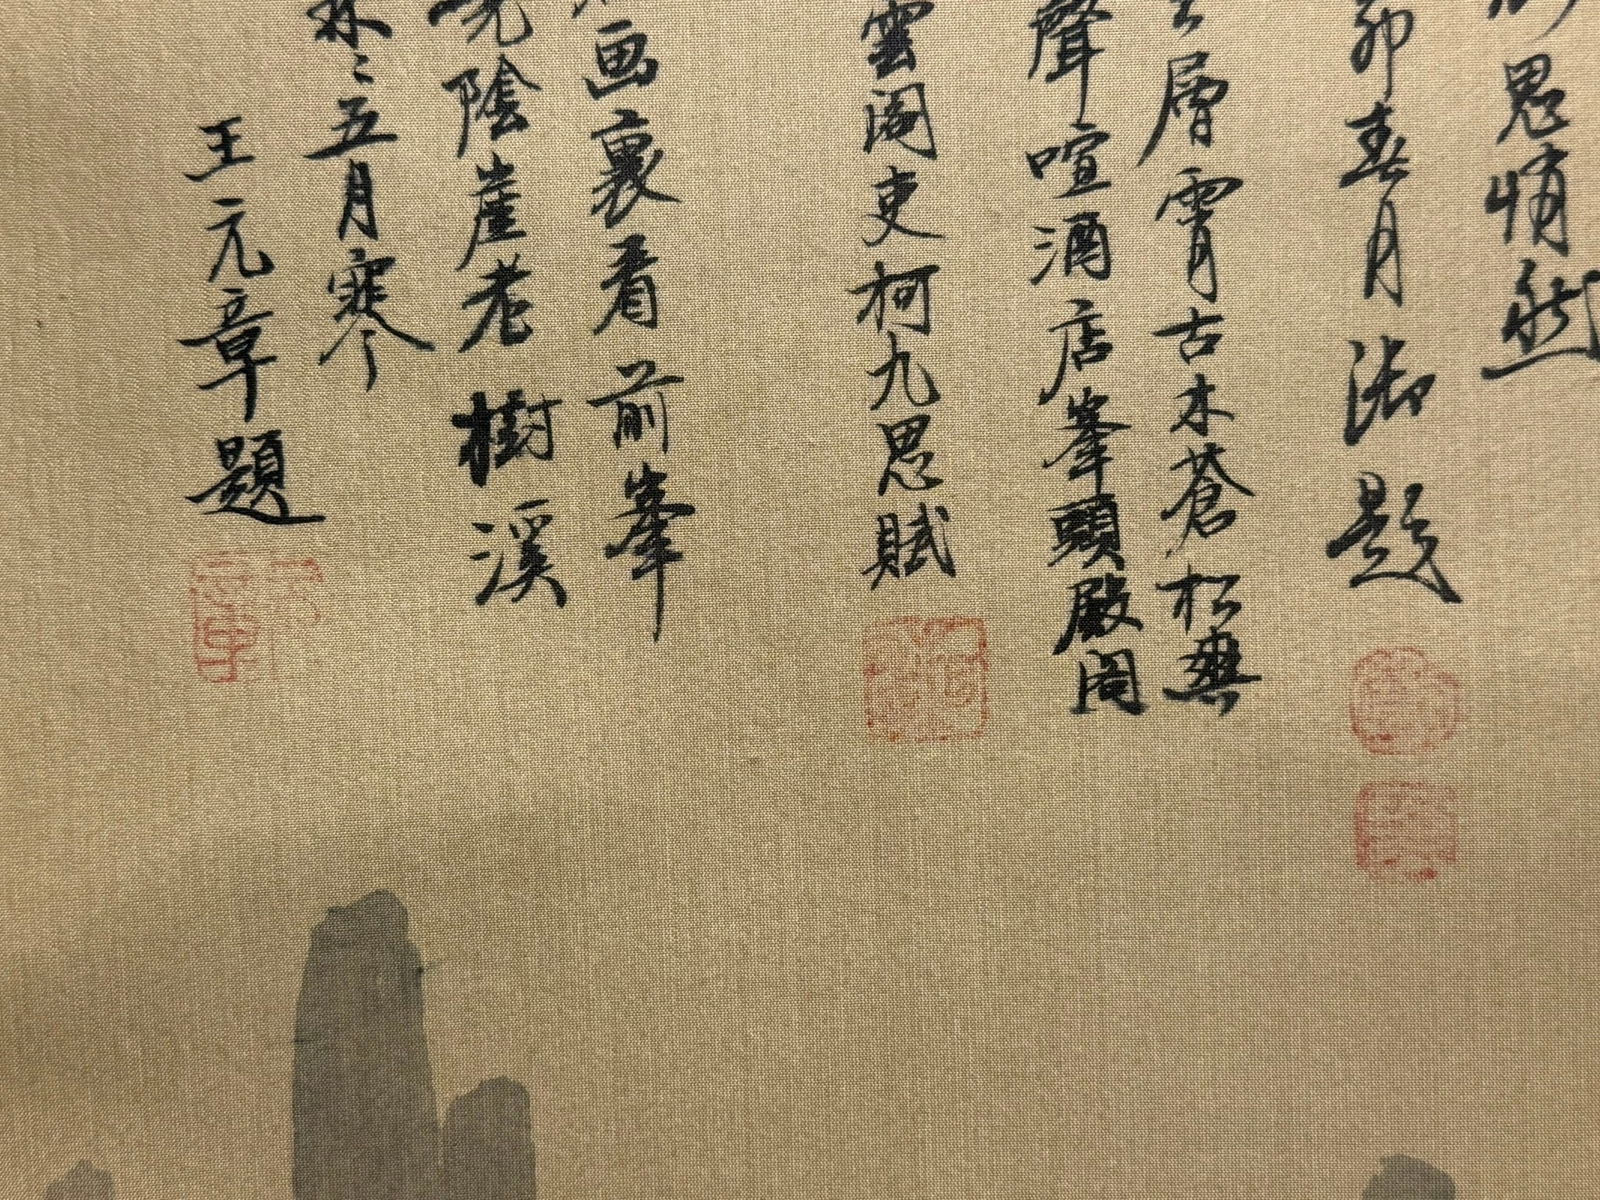 思悄然
卯春月御題
層霄古木蒼松與
聲喧酒店峯頭殿閣
雲閣吏柯九思賦
画裏看前峯
陰崖老樹溪
五月寒
王元章題